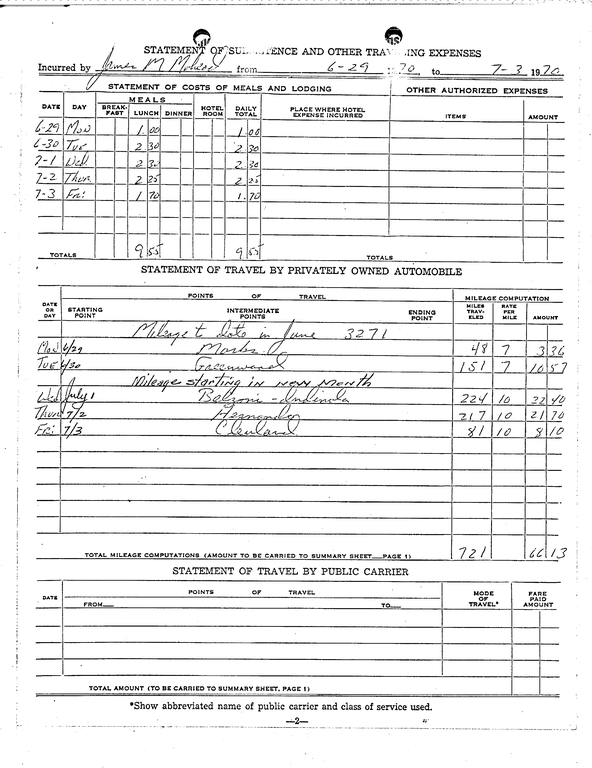 STATEMENT OF SUBSISTENCE AND OTHER TRAVELING EXPENSES
Incurred by James M from 6-29 1970 to 7-3 1970
STATEMENT OF COSTS OF MEALS AND LODGING OTHER AUTHORIZED EXPENSES
DATE DAY MEALS BREAK-FAST LUNCH DINNER HOTEL ROOM DAILY TOTAL PLACE WHERE HOTEL EXPENSE INCURRED ITEMS AMOUNT
6-29 Mon 1 00 1 00
6-30 Tue 2 30 2 30
7-1 Wed 2 30 2 30
7-2 Thur 2 25 2 25
7-3 Fri 1 70 1.70
TOTALS 9 55 9 55 TOTALS
STATEMENT OF TRAVEL BY PRIVATELY OWNED AUTOMOBILE
DATE OR DAY POINTS OF TRAVEL MILEAGE COMPUTATION
STARTING POINT INTERMEDIATE POINTS ENDING POINT MILES TRAV-ELED RATE PER MILE AMOUNT
Mileage to date in June 3271
Mon 6/29 Marks 48 7 3 36
Tue 6/30 Greenwood 151 7 10 57
Mileage starting in new month
Wed July 1 Belzoni - Indianola 224 10 22 40
Thur 7/2 Hernando 217 10 21 70
Fri 7/3 Cleveland 81 10 8 10
TOTAL MILEAGE COMPUTATIONS (AMOUNT TO BE CARRIED TO SUMMARY SHEET__PAGE 1) 721 66 13
STATEMENT OF TRAVEL BY PUBLIC CARRIER
DATE POINTS OF TRAVEL MODE OF TRAVEL* FARE PAID AMOUNT
FROM__ TO__
TOTAL AMOUNT (TO BE CARRIED TO SUMMARY SHEET, PAGE 1)
*Show abbreviated name of public carrier and class of service used.
—2—